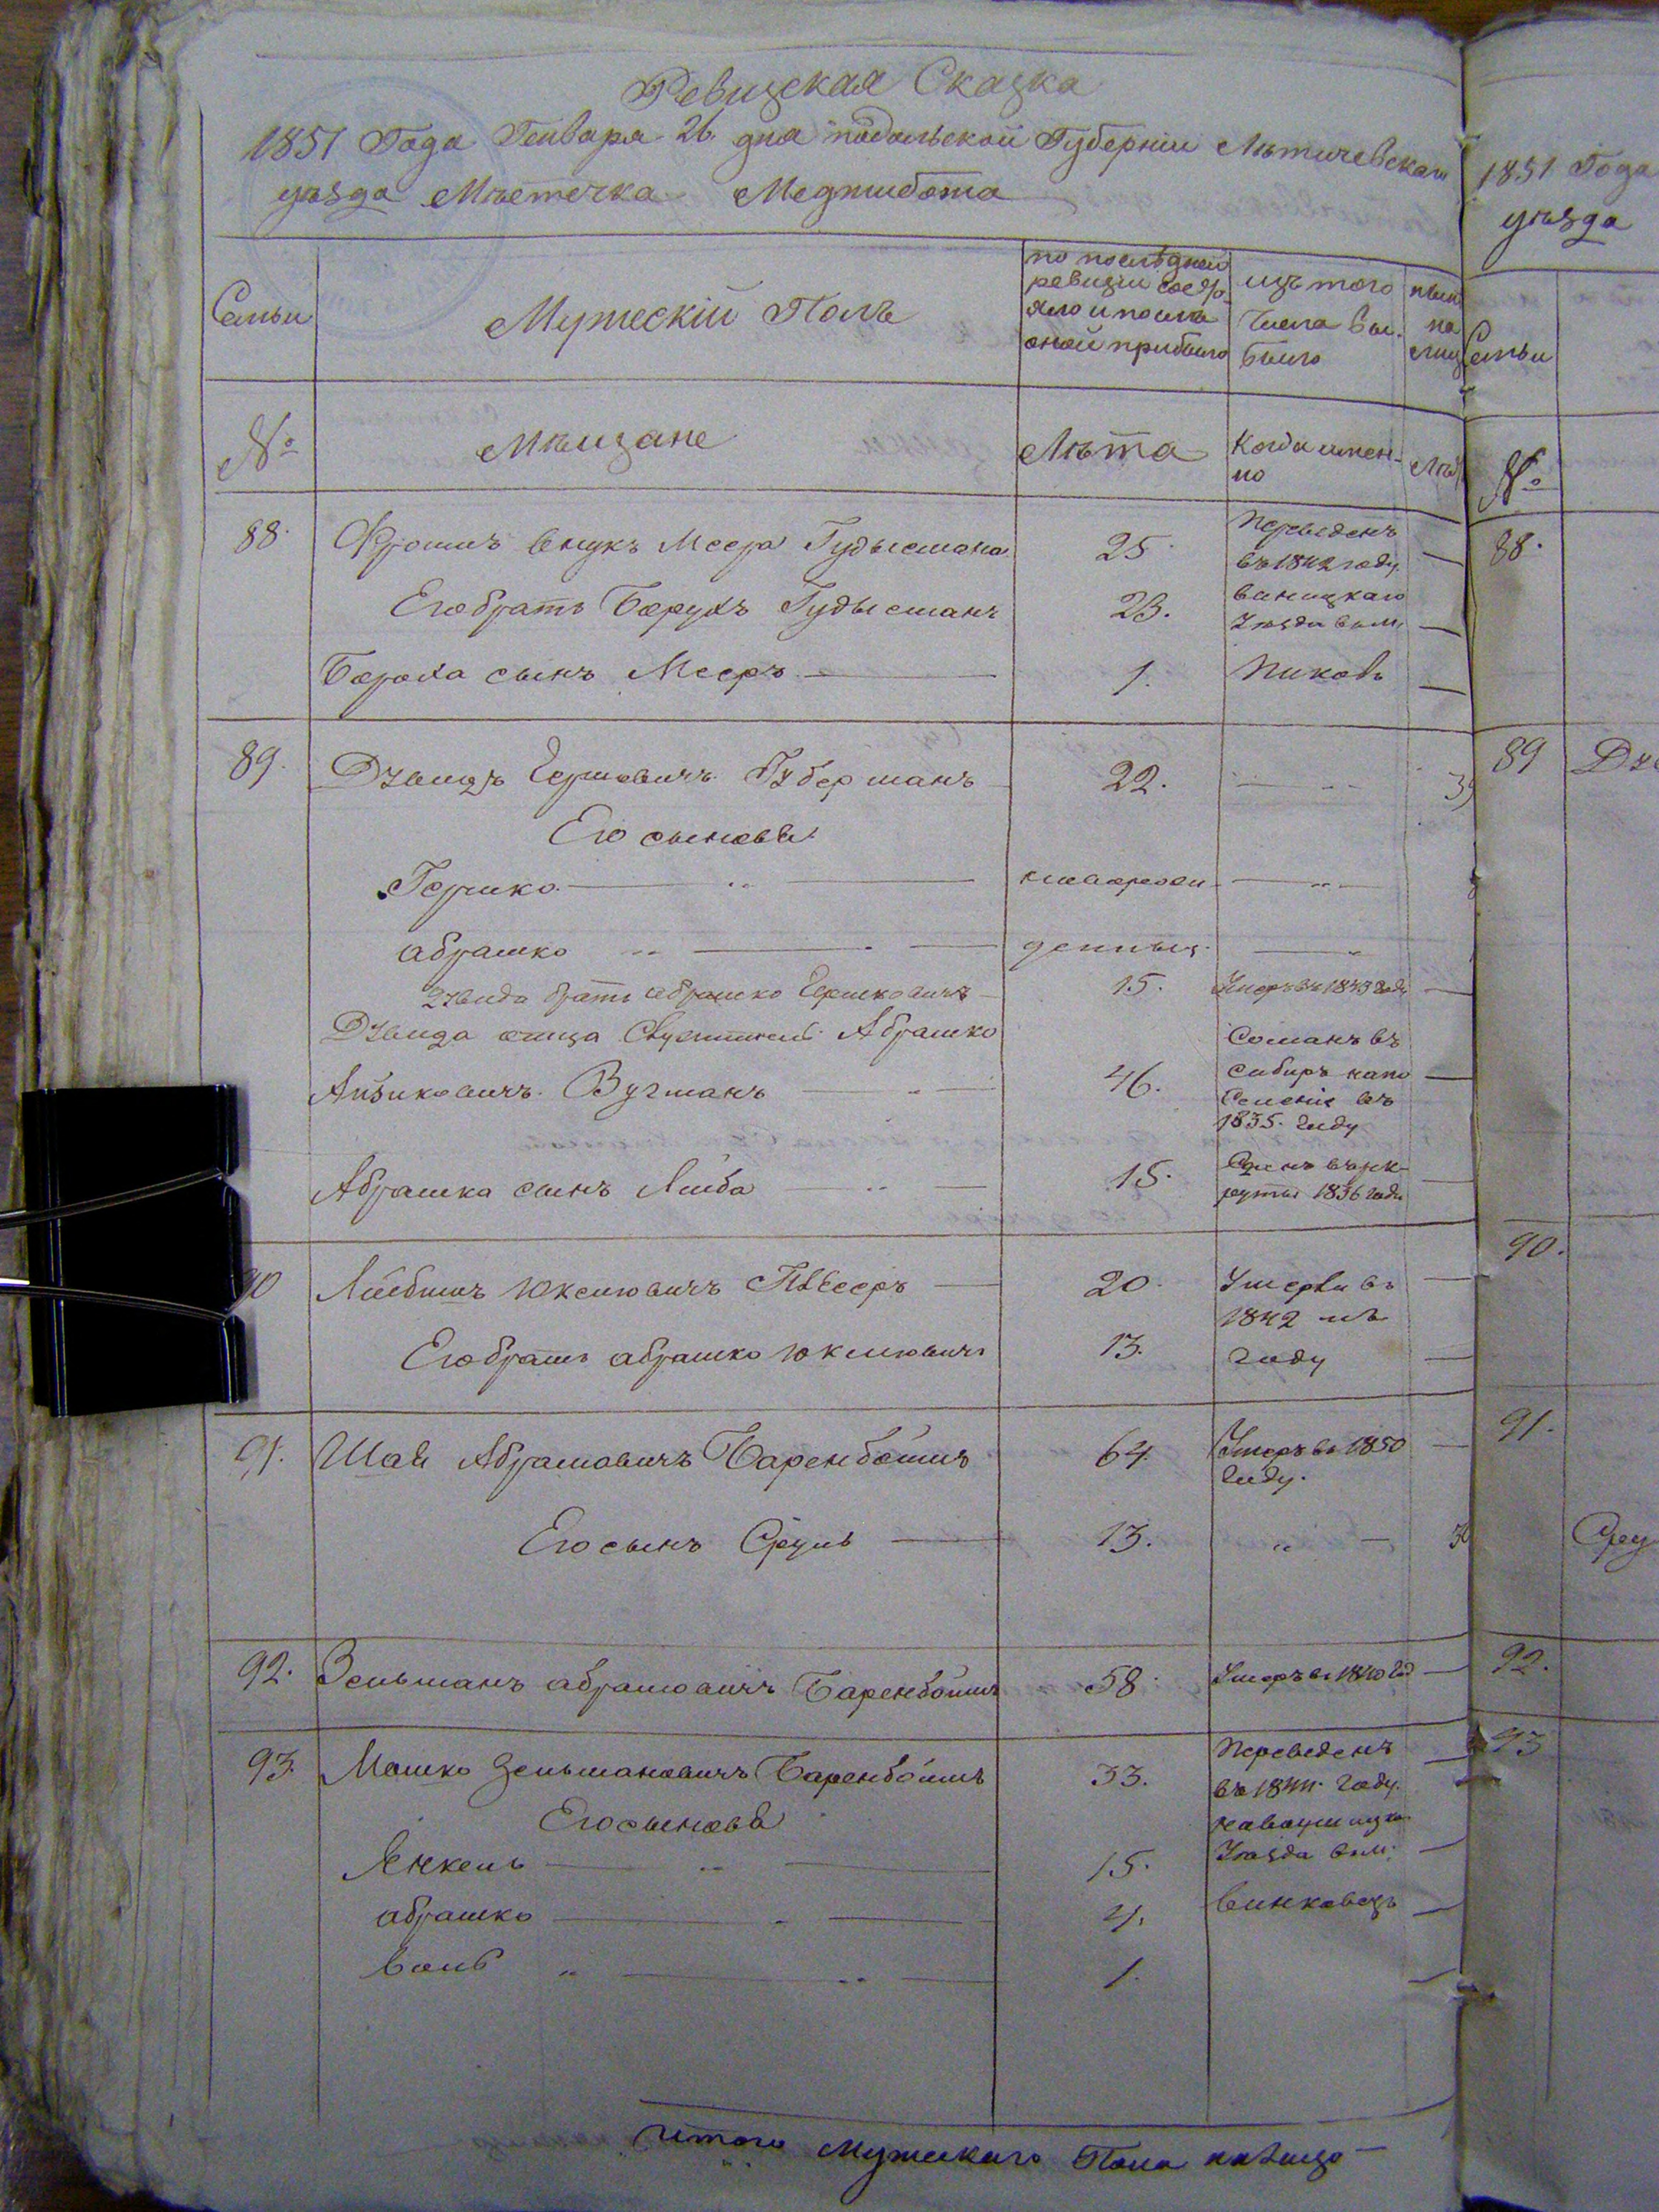 Ревизская Сказка
1851 Года Генваря 26 дня Подольской Губернии Летичевскаго
уѣзда Мѣстечка Меджибожа
Семьи
Мужескій Полъ
по последней ревизіи состояло и после оной прибыло
изъ того числа выбыло
ныне на лиц
№
Мѣщане
Лѣта
Когда именно
Лѣт
88. Фроимъ внукъ Меера Гудысмана 25. Переведенъ въ 1842 году
Его братъ Борухъ Гудысманъ 23. Виницкаго Уѣзда в м.
Бороха сынъ Мееръ 1. Пиковъ
89. Дувидъ Гершовичъ Губерманъ 22.
Его сыновья
Гершко новорож
Абрашко денныи
Дувида братъ Абрашко Гершковичъ 15. Умеръ въ 1843 году
Дувида отца Абрашко
Айзиковичъ Вугманъ 46. Сосланъ въ Сибирь на поселеніе въ 1835 году
Абрашка сынъ Лейба 15. рекруты 1836 года
90 Лейбишъ Юкелювичъ 20. Умерли въ 1842 мъ
Его братъ Абрашко Юкелювичъ 13. году
91. Шая Абрамовичъ Баренбоимъ 64. Умеръ въ 1850 году.
Его сынъ Сруль 13.
92. Зельманъ Абрамовичъ Баренбоимъ 58. Умеръ въ 1840 год
93. Мошко Зельмановичъ Баренбоимъ 33. Переведенъ въ 1844 году
Его сыновья
Янкель 15. Уѣзда в м.
Абрашко 4. Винковецъ
Волъ 1.
Итого Мужескаго Пола на лицо
1851 Года
уѣзда
Семьи
№
88.
89
90.
91.
Сру
92.
93